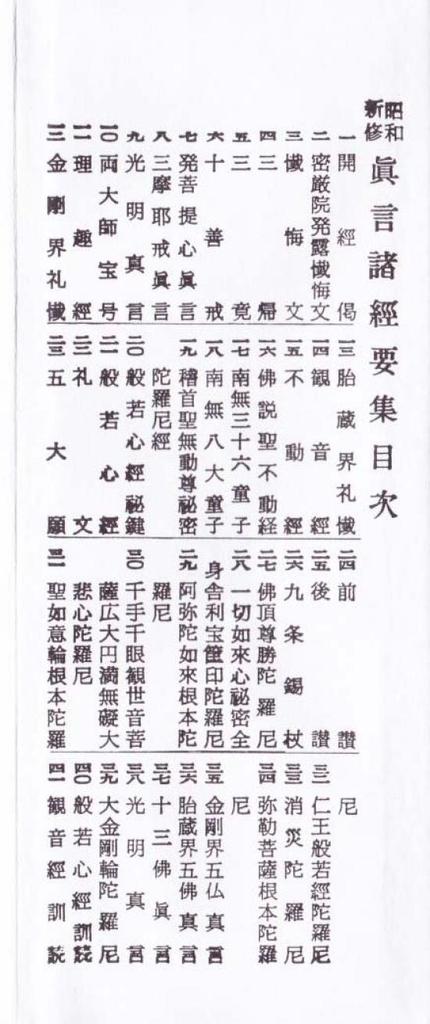 昭和新修 眞言諸經要集目次
一 開經偈
二 密厳院発露懺悔文
三 懺悔文
四 三帰
五 三竟
六 十善戒
七 発菩提心眞言
八 三摩耶戒眞言
九 光明真言
一〇 両大師宝号
一一 理趣經
一二 金剛界礼懺
一三 胎蔵界礼懺
一四 観音經
一五 不動經
一六 佛説聖不動経
一七 南無三十六童子
一八 南無八大童子
一九 稽首聖無動尊秘密
陀羅尼經
二〇 般若心經祕鍵
二一 般若心經
二二 礼文
二三 五大願
二四 前讃
二五 後讃
二六 九条錫杖
二七 佛頂尊勝陀羅尼
二八 一切如來心祕密全
身舎利宝篋印陀羅尼
二九 阿弥陀如來根本陀
羅尼
三〇 千手千眼観世音菩
薩広大円満無礙大
悲心陀羅尼
三一 聖如意輪根本陀羅
尼
三二 仁王般若經陀羅尼
三三 消災陀羅尼
三四 弥勒菩薩根本陀羅
尼
三五 金剛界五仏真言
三六 胎蔵界五佛真言
三七 十三佛眞言
三八 光明真言
三九 大金剛輪陀羅尼
四〇 般若心經訓読
四一 観音經訓読